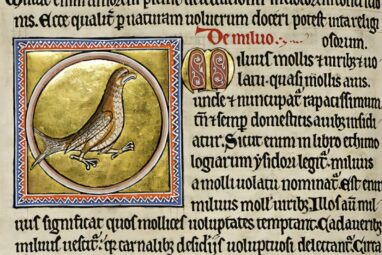 nis. Ecce qualit̃ p̃ naturam uolucrum doceri potest uita religi
De miluo. osorum.
Miluus mollis & uirib; & uo
latu. quasi mollis auis.
unde & nuncupat᷑. rapacissimum
tam̃ & semp̃ domesticis auib; insidi
atur. Sicut enim in libro ethimo
logiarum ysidori legit᷑. miluus
a molli uolatu nominat᷑. Est enim
miluus moll' uirib;. Illos aut̃ mil
uus significat quos mollices uoluptates temptant. Cadauerib;
miluus uescit᷑. q̃ carnalib; desideriis uoluptuosi delectant᷑. Circa